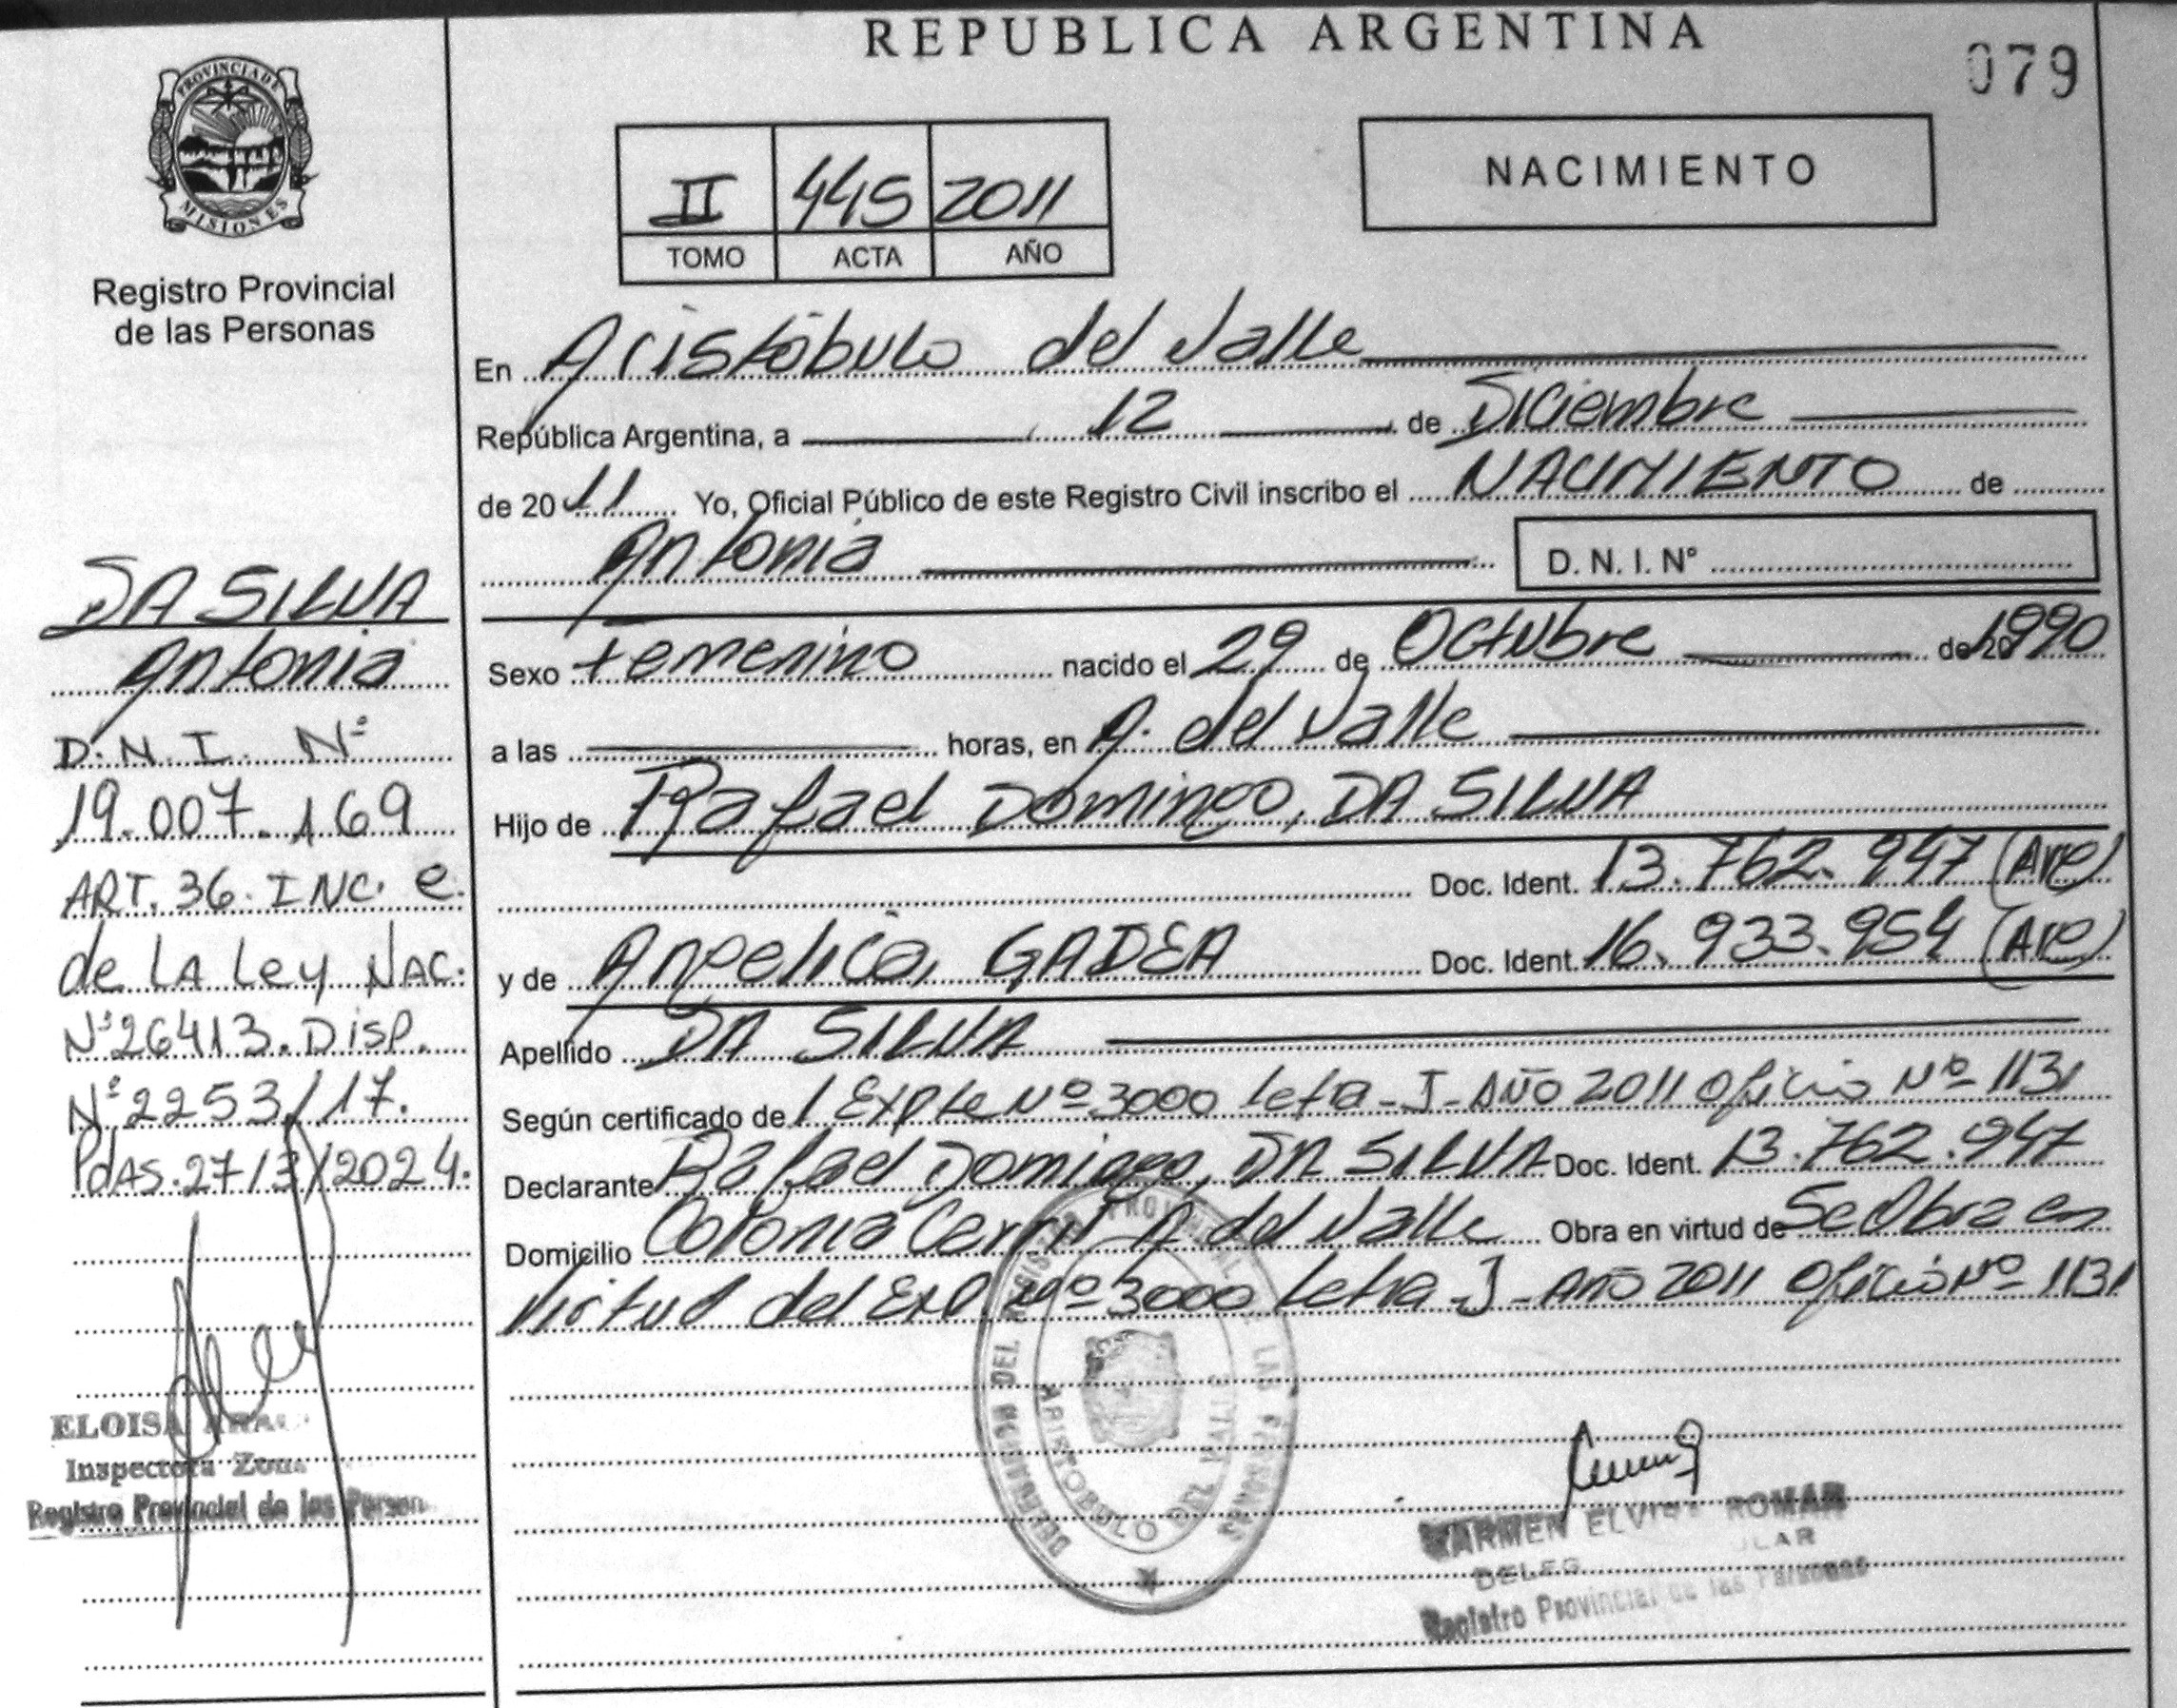 REPUBLICA ARGENTINA
079
PROVINCIA DE
MISIONES
Registro Provincial
de las Personas
II 445 2011
TOMO ACTA AÑO
NACIMIENTO
En Aristóbulo del Valle
República Argentina, a 12 de Diciembre
de 2011 Yo, Oficial Público de este Registro Civil inscribo el NACIMIENTO de
Antonia D. N. I. Nº
Sexo Femenino nacido el 29 de Octubre de 1990
a las horas, en A. del Valle
Hijo de Rafael Domingo, DA SILVA
Doc. Ident. 13.762.947 (Arg)
y de Angelica, GADEA Doc. Ident. 16.933.954 (Arg)
Apellido DA SILVA
Según certificado de Expte Nº 3000 Letra - J - AÑO 2011 Oficio Nº 1131
Declarante Rafael Domingo, DA SILVA Doc. Ident. 13.762.947
Domicilio Colonia A. del Valle Obra en virtud de Se Obra en
Virtud del Exp. Nº 3000 Letra - J - Año 2011 Oficio Nº 1131
DA SILVA
Antonia
D.N.I. Nº
19.007.169
ART. 36. INC. e.
de LA Ley NAC.
Nº 26413. Disp.
Nº 2253/17.
Pdas. 27/3/2024.
ELOISA
Inspectora
Registro Provincial de las
DEL REGISTRO PROVINCIAL DE LAS PERSONAS
ARISTOBULO DEL VALLE
CARMEN ELVIRA ROMAN
Registro Provincial de las Personas